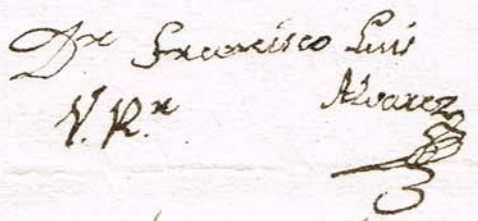 Dr Francisco Luis
V. R.r Alvarez